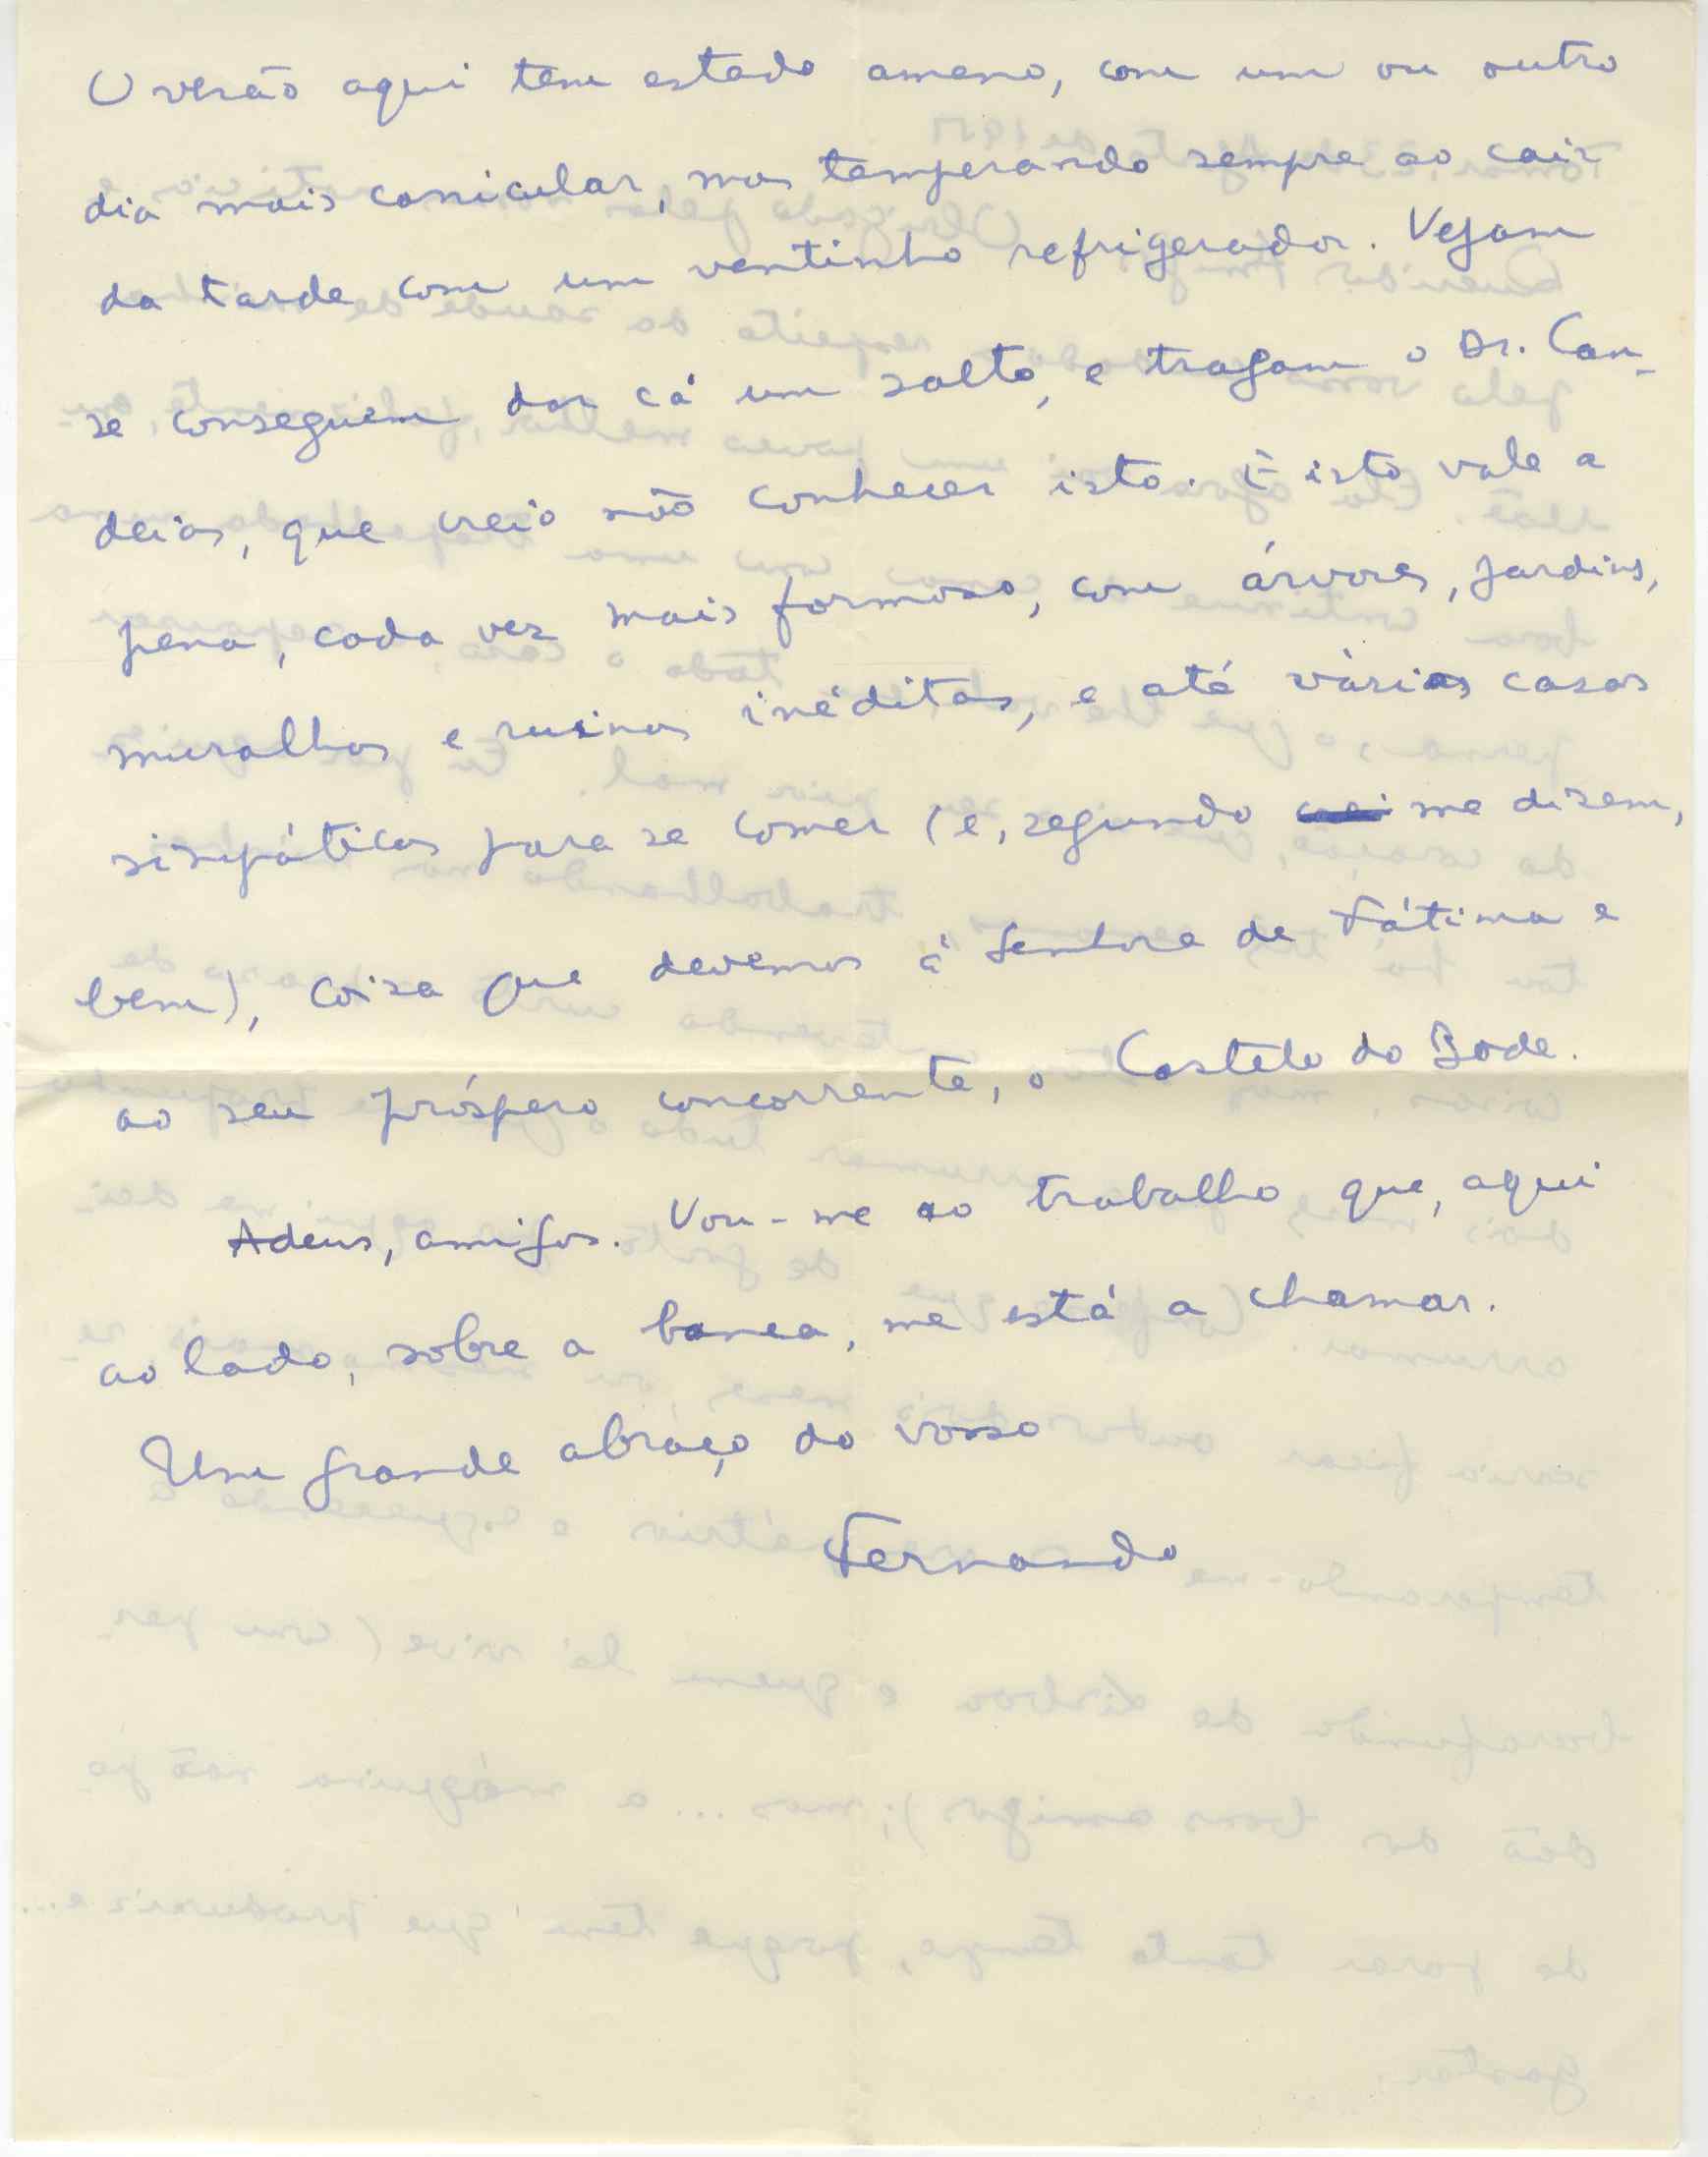 O verão aqui tem estado ameno, com um ou outro
dia mais canicular, mas temperando sempre ao cair
da tarde com um ventinho refrigerador. Vejam
se conseguem dar cá um salto, e tragam o Dr. Can-
deias, que creio não conhecer isto. E isto vale a
pena, cada vez mais formoso, com árvores, jardins,
muralhas e ruinas inéditas, e até várias casas
simpáticas para se comer (e, segundo me dizem,
bem), coisa que devemos à Senhora de Fátima e
ao seu próspero concorrente, o Castelo do Bode.
Adeus, amigos. Vou-me ao trabalho que, aqui
ao lado, sobre a banca, me está a chamar.
Um grande abraço do vosso
Fernando